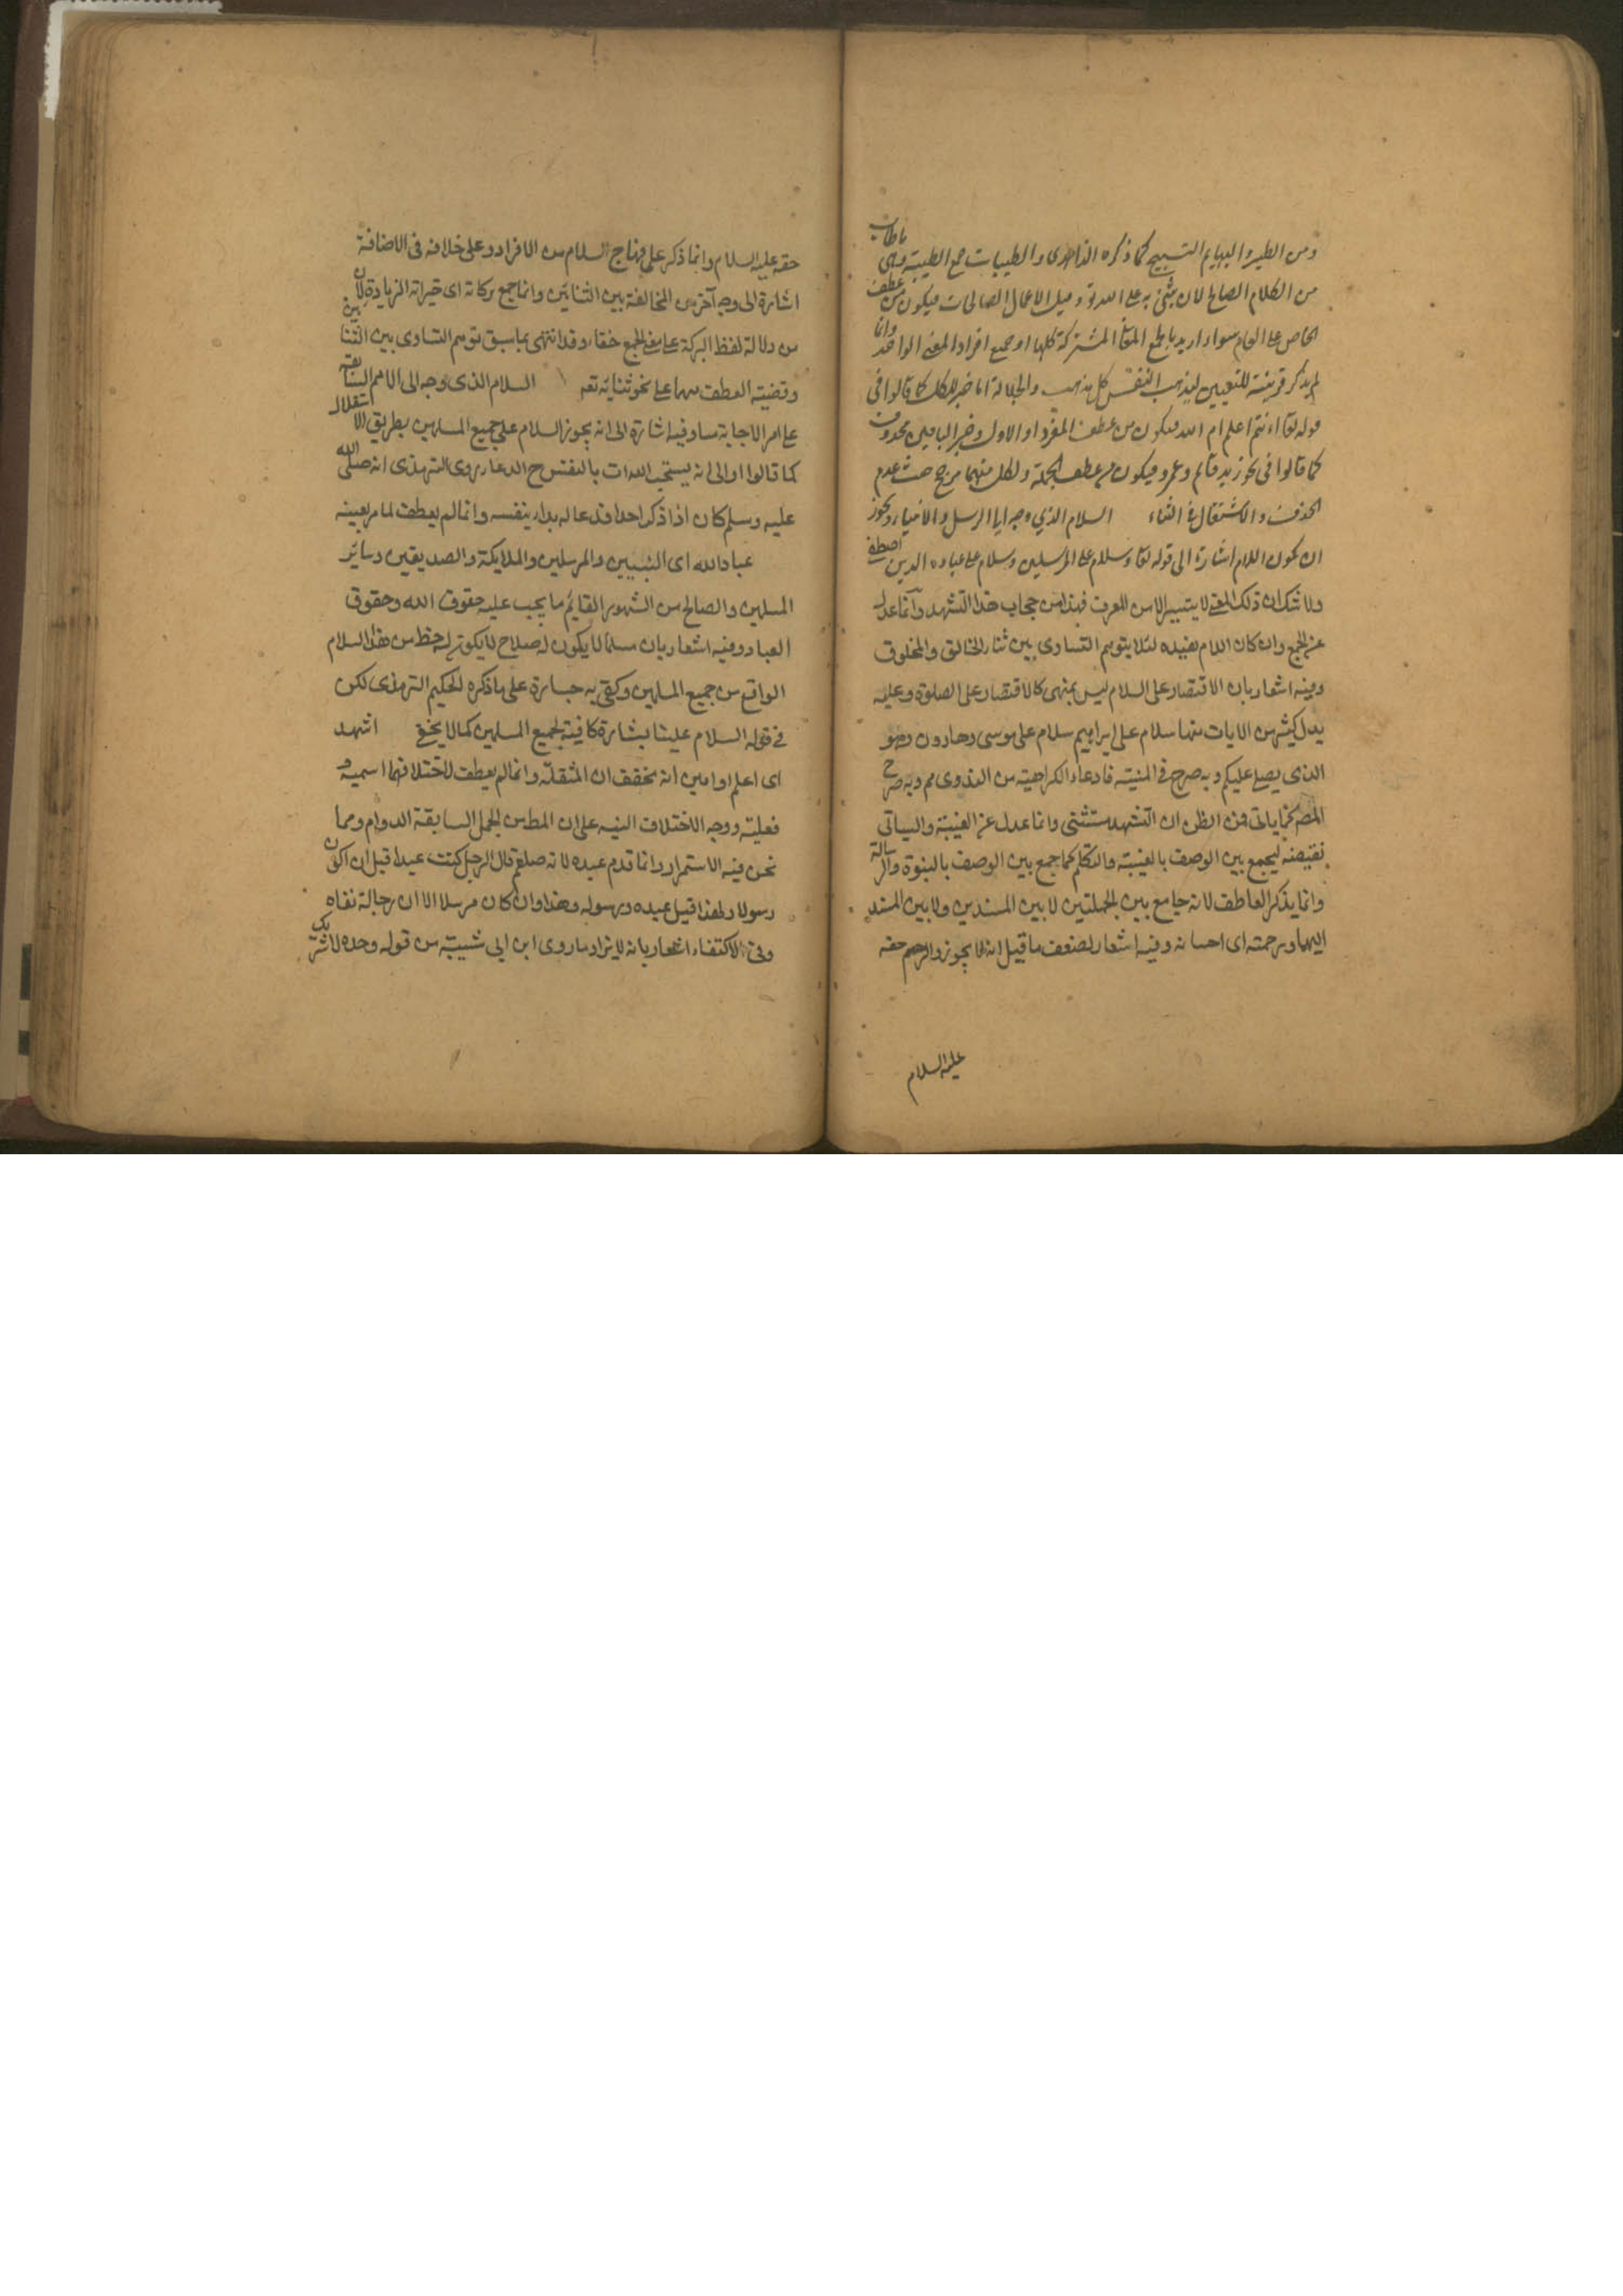 ومن الطير والبهايم التسبيح كما ذكره الزاهدى والطيبات جمع الطيبة وهى ما طاب
من الكلام الصالح لان يثنى به على الله تع وقيل الاعمال الصالحات فيكون من عطف
الخاص على العام سواء اريد بالجمع المعانى المشتركة كلها او جميع افراد المعنى الواحد وانما
لم يذكر قرينة للتعيين ليذهب النفس كل مذهب والجلالة اما خبر للكل كما قالوا فى
قوله تعا ءانتم اعلم ام الله فيكون من عطف المفرد او الاول وخبر الباقيين محذوف
كما قالوا فى نحو زيد قائم وعمرو فيكون من عطف الجملة ولكل منهما مرجح حيث عدم
الحذف والاشتغال فى الثناء السلام الذي وجه الى الرسل والانبياء ويجوز
ان يكون اللام اشارة الى قوله تعا وسلام على المرسلين وسلام على عباده الذين اصطفى
ولا شك ان ذلك المعنى لا يتيسر الا من المعرف فهذا من عجاب هذا التشهد وانما عدل
عن الجمع وان كان اللام يفيده لئلا يتوهم التساوى بين ثناء الخالق والمخلوق
وفيه اشعار بان الاقتصار على السلام ليس بمنهى كالاقتصار على الصلوة وعليه
يدل كثير من الايات منها سلام على ابراهيم سلام على موسى وهارون وهو
الذى يصلى عليكم وبه صرح فى المنية فادعاء الكراهية من النووى مم وبه صرح
المصـ كما ياتى فمن الظن ان التشهد مستثنى وانما عدل عن الغيبة والسياق
يقتضيه ليجمع بين الوصف بالغيبة والتكلم كما جمع بين الوصف بالنبوة والرسالة
وانما يذكر العاطف لانه جامع بين الجملتين لا بين المسندين ولا بين المسند
اليهما ورحمته اى احسانه وفيه اشعار لضعف ما قيل انه لا يجوز وارحم حقه
عليه السلام
حقه عليه السلام وانما ذكر على منهاج السلام من الافراد وعلى خلافه فى الاضافة
اشارة الى وجه آخر من المخالفة بين الثنائين وانما جمع بركاته اى خيراته الزيادة لان
من دلالة لفظ البركة على معنى الجمع خفاء وقد انتهى بما سبق توهم التساوى بين الثنائين
وقضية العطف سهما على نحو ثنائه تعه السلام الذى وجه الى الامم السابقة
على امر الاجابة منا وفيه اشارة الى انه يجوز السلام على جميع المسلمين بطريق الاستقلال
كما قالوا والى انه يستحب البداءة بالنفس ح الدعاء روى الترمذى انه صلى الله
عليه وسلم كان اذا ذكر احدا فدعا له بداء بنفسه وانما لم يعطف لما مر بعينه
عباد الله اى النبيين والمرسلين والملايكة والصديقين وسائر
المسلمين والصالح من الشهور القائم ما يجب عليه حقوق الله وحقوق
العباد وفيه اشعار بان مسلما لا يكون له صلاح لا يكون له حظ من هذا السلام
الواقع من جميع المسلمين وكفى به خسارة على ما ذكره الحكيم الترمذى لكن
فى قوله السلام علينا بشارة كافية لجميع المسلمين كما لا يخفى اشهد
اى اعلم او ابين انه مخفف ان المثقلة وانما لم يعطف للاختلافهما اسمية و
فعلية ووجه الاختلاف التنبيه على ان المط من الجمل السابقة الدوام ومما
نحن فيه الاستمرار وانما قدم عبده لانه صلعم قال لرجل كنت عبدا قبل ان اكون
رسولا ولهذا قيل عبده ورسوله وهذا وان كان مرسلا الا ان رجاله ثقاه
وفى الاكتفاء اشعار بانه لا يزاد ما روى ابن ابى شيبة من قوله وحده لا شريك